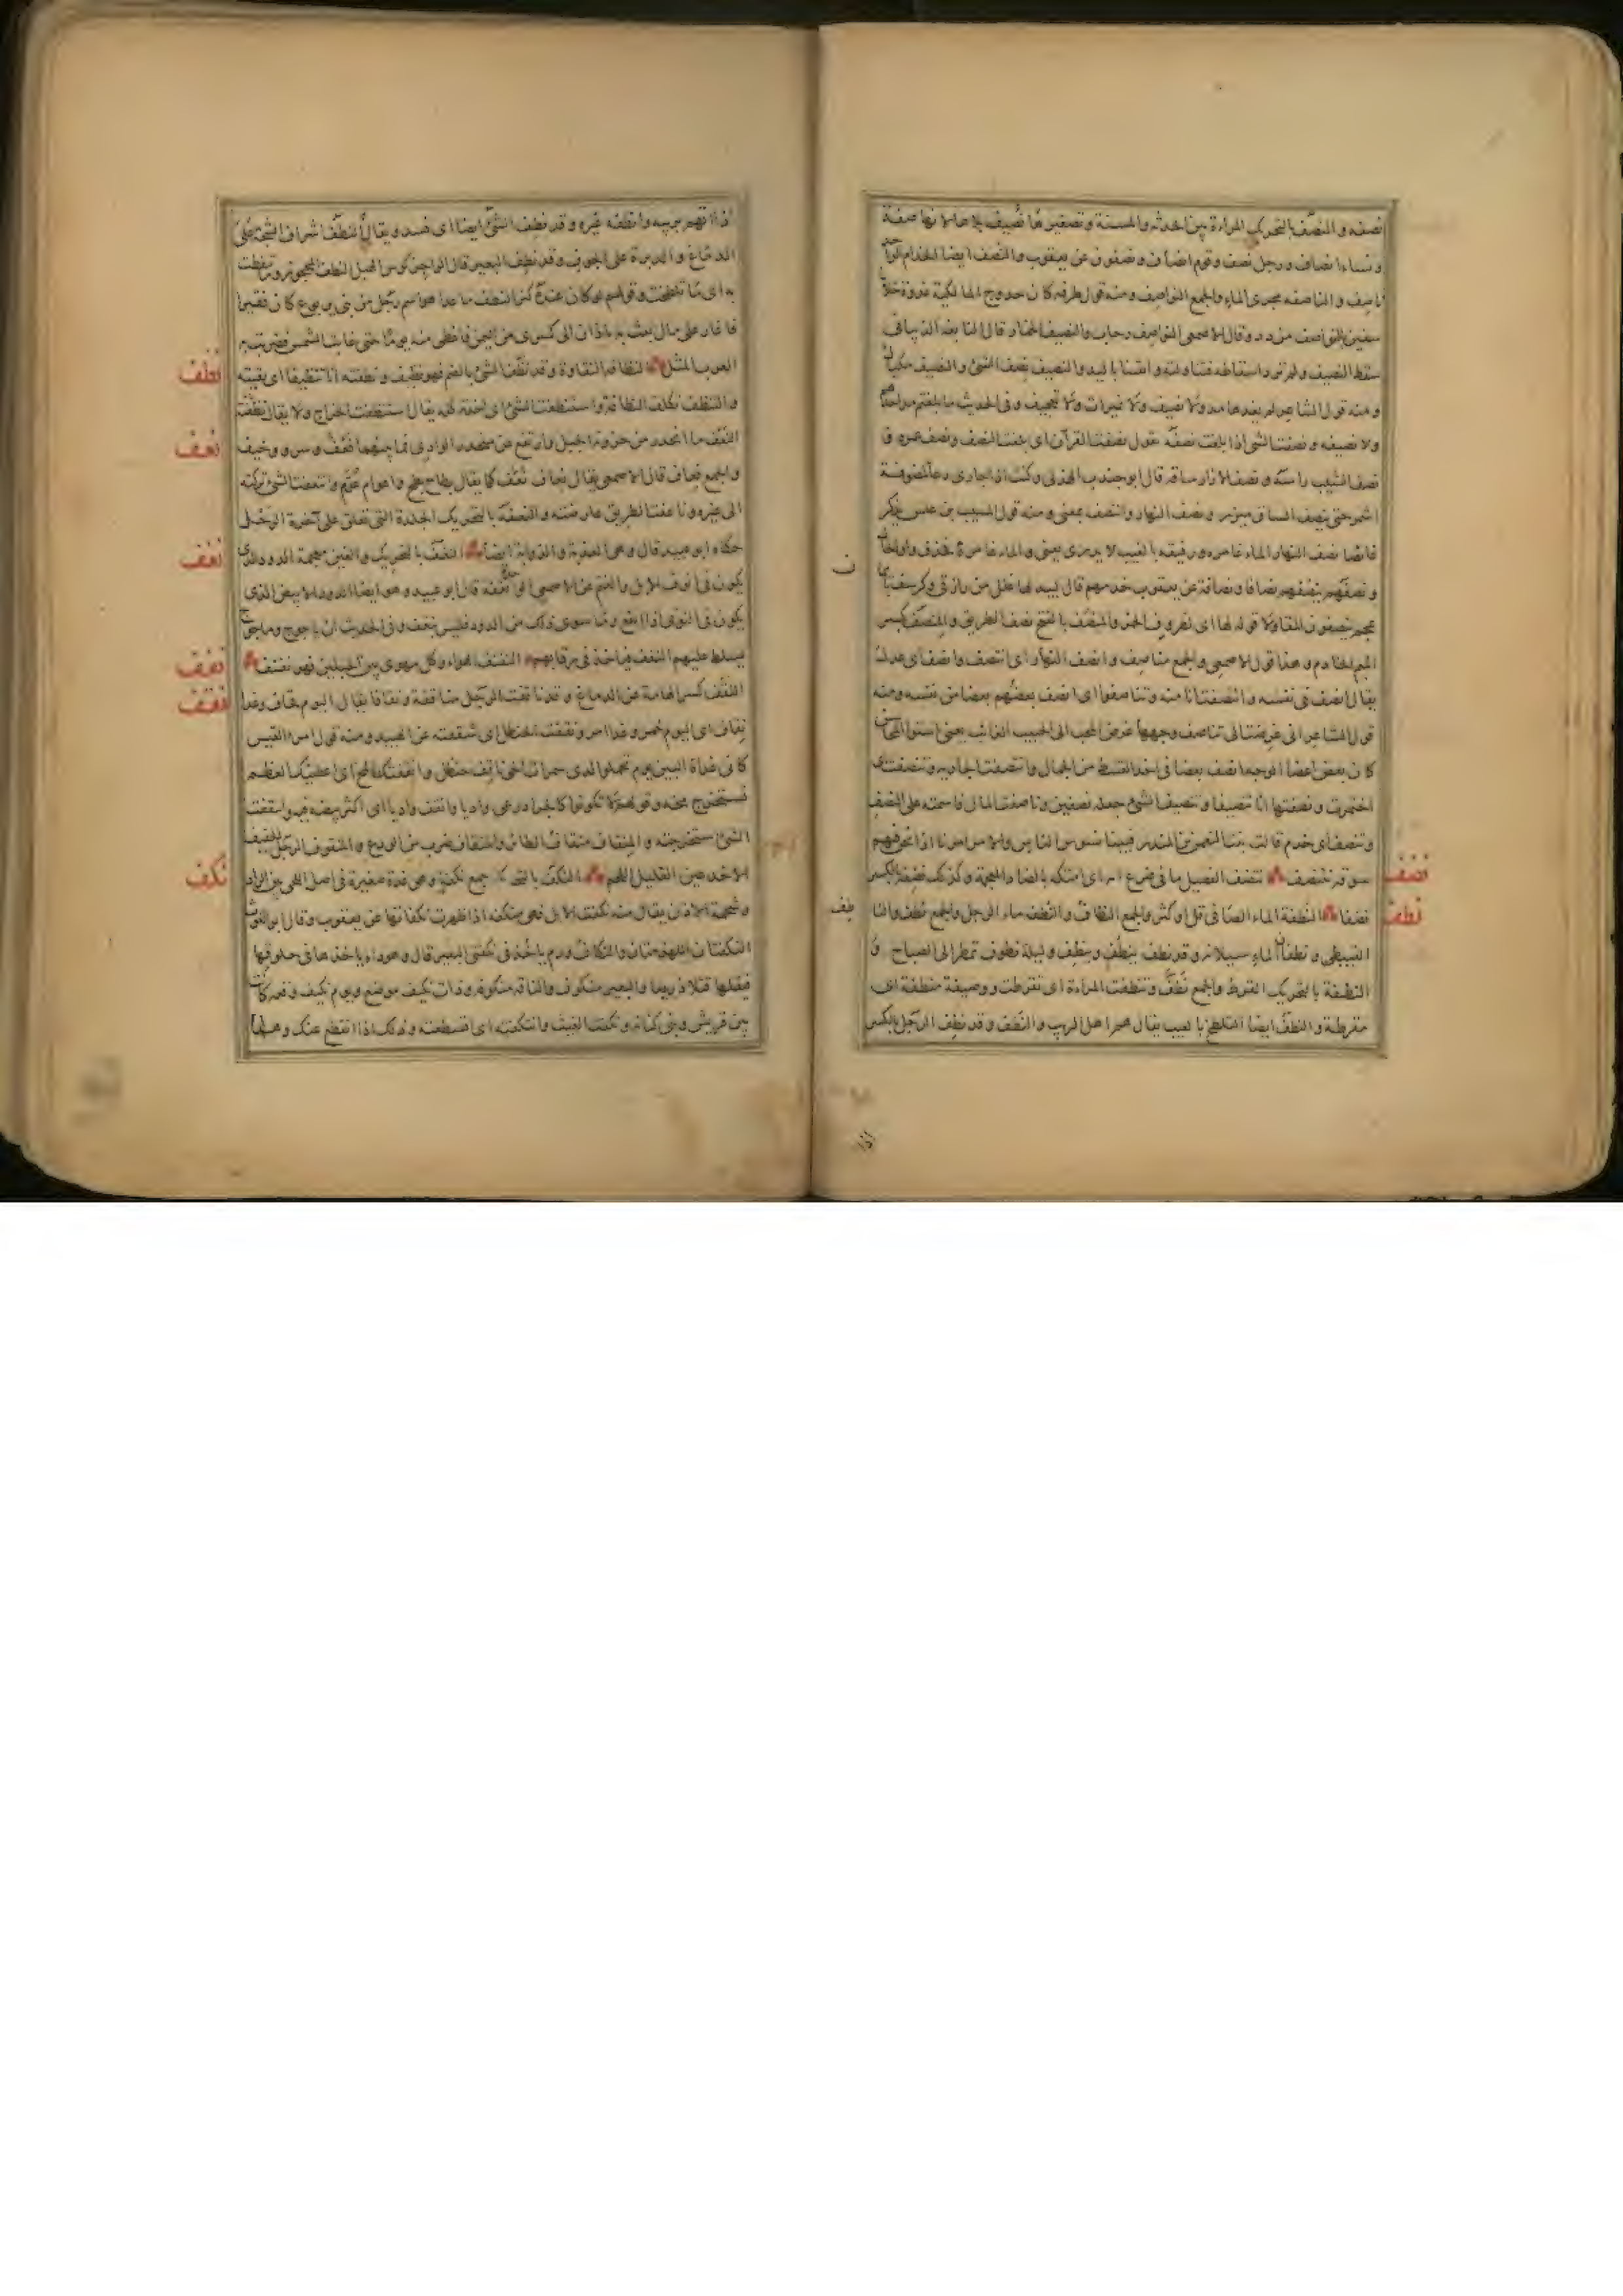 نصفه و النصف بالتحريك المراة بين الحدثة والمسنة وتصغيرها نصيف بلا هاء لانها صفة
ونساء انصاف ورجل نصف وقوم انصاف ونصفون عن يعقوب والنصف ايضا الخدام الواحد
ناصف والمناصفة مجرى الماء والجمع النواصف ومنه قول طرفة كان حدوج المالكية غدوة خلايا
سفين بالنواصف من دد وقال الاصمعى النواصف رحاب والنصيف الخمار قال النابغة الذبيانى
سقط النصيف ولم ترد اسقاطه فتناولته واتقتنا باليد والنصيف نصف الشئ والنصيف مكيال
ومنه قول الشاعر لم يغذها مد ولا نصيف ولا تميرات ولا تعجيف وفى الحديث ما بلغتم مد احدهم
ولا نصيفه ونصفت الشئ اذا بلغت نصفه تقول نصفت القرآن اى بلغت النصف ونصف عمره و
نصف الشيب راسه ونصف الازار ساقه قال ابو جندب الهذلى وكنت اذا جارى دعا لمضوفة
اشمر حتى ينصف الساق ميزرى ونصف النهار وانتصف بمعنى ومنه قول المسيب بن علس يذكر
غائصا نصف النهار الماء غامره ورفيقه بالغيب لا يدرى يعنى والماء غامره فحذف واو الحال
ونصفهم ينصفهم نصافا ونصافة عن يعقوب خدمهم قال لبيد لها غلل من رازقى وكرسف بايمان
عجم ينصفون المقاولا قوله لها اى لظروف الخمر والمنصف بالفتح نصف الطريق والمنصف بكسر
الميم الخادم وهذا قول الاصمعى والجمع مناصف وانصف النهار اى انتصف وانصف اى عدل
يقال انصف فى نفسه وانتصفت انا منه وتناصفوا اى انصف بعضهم بعضا من نفسه ومنه
قول الشاعر انى غرضت الى تناصف وجهها غرض المحب الى الحبيب الغائب يعنى استواء المحاسن
كان بعض اعضاء الوجه انصف بعضا فى اخذ القسط من الجمال وانتصفت الجارية وتنصفت اى
اختمرت ونصفتها انا تنصيفا وتنصيف الشئ جعله نصفين وناصفت المال قاسمته على النصف
وتنصف اى خدم قالت بنت النعمن بن المنذر فبينا نسوس الناس والامر امرنا اذا نحن فيهم
نضف
سوقة نتنصف انتضف الفصيل ما فى ضرع امه اى امتكه بالضاد المعجمة وكذلك نضفه بالكسر
نطف
نضفا النطفة الماء الصافى قل او كثر والجمع النطاف والنطفة ماء الرجل والجمع نطف والناطف
القبيطى ونطفان الماء سيلانه وقد نطف ينطف وينطف وليلة نطوف تمطر الى الصباح و
النطفة بالتحريك القرط والجمع نطف وتنطفت المراة اى تقرطت ووصيفة منطفة اى
مقرطة والنطف ايضا التلطخ بالعيب يقال هم اهل الريب والنطف وقد نطف الرجل بالكسر
اذا
اذا اتهم بريبة وانطفه غيره وقد نطف الشئ ايضا اى فسد ويقال النطف اشراف الشجة على
الدماغ والدبرة على الجوف وقد نطف البعير قال الراجز كوس الهبل النطف المحجوز وما تنطفت
به اى ما تلطخت وقولهم لو كان عنده كنز النطف ما عدا هو اسم رجل من بنى يربوع كان فقيرا
فاغار على مال بعث به باذان الى كسرى من اليمن فاعطى منه يوما حتى غابت الشمس فضربت به
نظف
العرب المثل النظافة النقاوة وقد نظف الشئ بالضم فهو نظيف ونظفته انا تنظيفا اى نقيته
والتنظف تكلف النظافة واستنظفت الشئ اى اخذته كله يقال استنظفت الخراج ولا يقال نظفته
نعف
النعف ما انحدر من حزونة الجبل وارتفع عن منحدر الوادى فما بينهما نعف وسرو وخيف
والجمع نعاف قال الاصمعى يقال نعاف نعف كما يقال بطاح بطح واعوام عوم وانتعفت الشئ تركته
الى غيره وناعفت الطريق عارضته والنعفة بالتحريك الجلدة التى تعلق على آخرة الرحل
نغف
حكاه ابو عبيد قال وهى العذبة والذوابة ايضا النغف بالتحريك والغين معجمة الدود الذى
يكون فى انوف الابل والغنم عن الاصمعى الواحدة نغفة قال ابو عبيد وهو ايضا الدود الابيض الذى
يكون فى النوى اذا انقع وما سوى ذلك من الدود فليس بنغف وفى الحديث ان ياجوج وماجوج
نفف
يسلط عليهم النغف فياخذ فى رقابهم النفنف الهواء وكل مهوى بين الجبلين فهو نفنف
نقف
النقف كسر الهامة عن الدماغ وقد ناقفت الرجل مناقفة ونقافا يقال اليوم قحاف وغدا
نقاف اى اليوم خمر وغدا امر ونقفت الحنظل اى شققته عن الهبيد ومنه قول امرء القيس
كانى غداة البين يوم تحملوا لدى سمرات الحى ناقف حنظل وانقفتك المخ اى اعطيتك العظم
تستخرج مخه وقولهم لا تكونوا كالجراد رعى واديا وانقف واديا اى اكثر بيضه فيه وانتقفت
الشئ استخرجته والمنقاف منقار الطائر والمنقاف ضرب من الودع والمنقوف الرجل الخفيف
نكف
الاخدعين القليل اللحم النكف بالتحريك جمع نكفة وهى غدة صغيرة فى اصل اللحى بين الراد
وشحمة الاذن يقال منه نكفت الابل فهى منكفة اذا ظهرت نكفاتها عن يعقوب وقال ابو الغوث
النكفتان اللهزمتان والنكاف ورم ياخذ فى نكفتى البعير قال وهو داء ياخذها فى حلوقها
فيقتلها قتلا ذريعا والبعير منكوف والناقة منكوفة وذات نكيف موضع ويوم نكيف وقعة كانت
بين قريش وبنى كنانة ونكفت الغيث وانتكفته اى اقتطعته وذلك اذا انقطع عنك وهذا